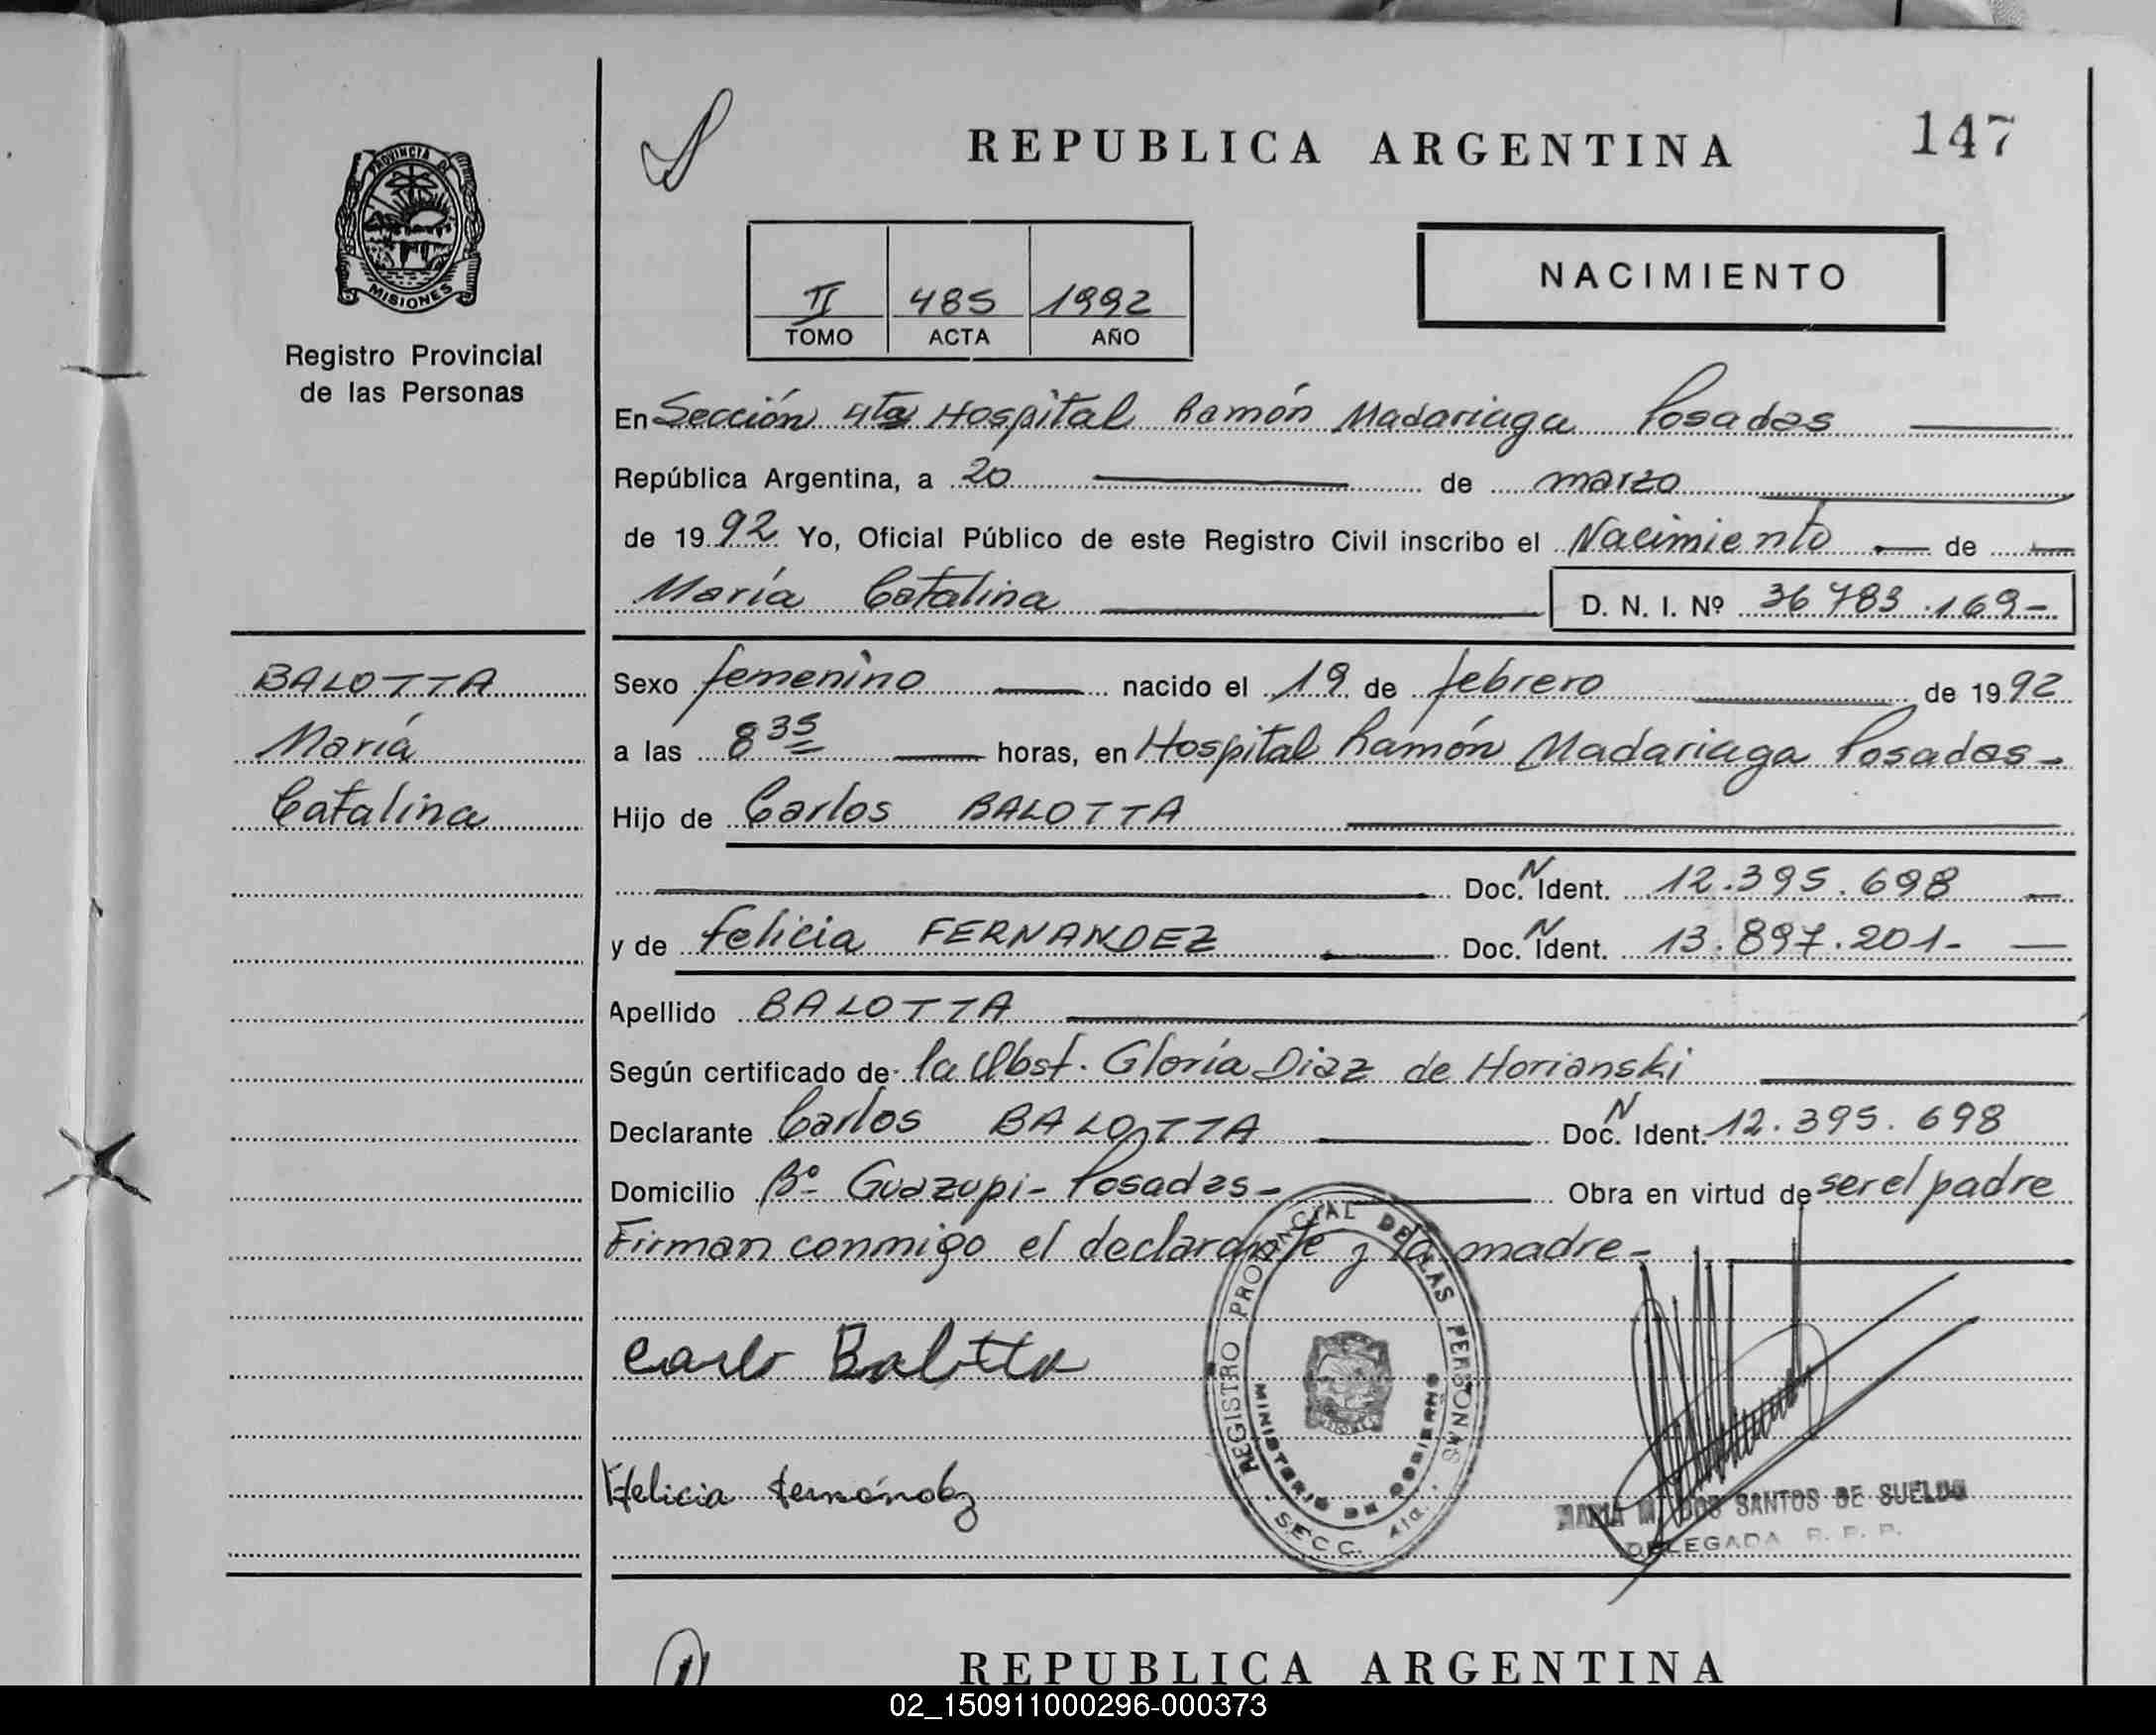 REPUBLICA ARGENTINA
147
PROVINCIA DE
MISIONES
Registro Provincial
de las Personas
II 485 1992
TOMO ACTA AÑO
NACIMIENTO
En Sección 4ta Hospital Ramón Madariaga Posadas
República Argentina, a 20 de marzo
de 1992 Yo, Oficial Público de este Registro Civil inscribo el Nacimiento de
María Catalina D. N. I. Nº 36 783.169-
BALOTTA
María
Catalina
Sexo femenino nacido el 19 de febrero de 1992
a las 8 35 horas, en Hospital Ramón Madariaga Posadas-
Hijo de Carlos BALOTTA
Doc. N Ident. 12.395.698
y de felicia FERNANDEZ Doc. N Ident. 13.897.201-
Apellido BALOTTA
Según certificado de la Obst. Gloria Diaz de Horianski
Declarante Carlos BALOTTA Doc. N Ident. 12.395.698
Domicilio Bº Guazupi- Posadas- Obra en virtud de ser el padre
Firman conmigo el declarante y la madre-
Carlo Balotta
Felicia Fernández
REGISTRO PROVINCIAL DE LAS PERSONAS
MINISTERIO DE GOBIERNO
SECC. 4ta.
MARIA M. DOS SANTOS DE SUELDO
DELEGADA R. P. P.
REPUBLICA ARGENTINA
02_150911000296-000373